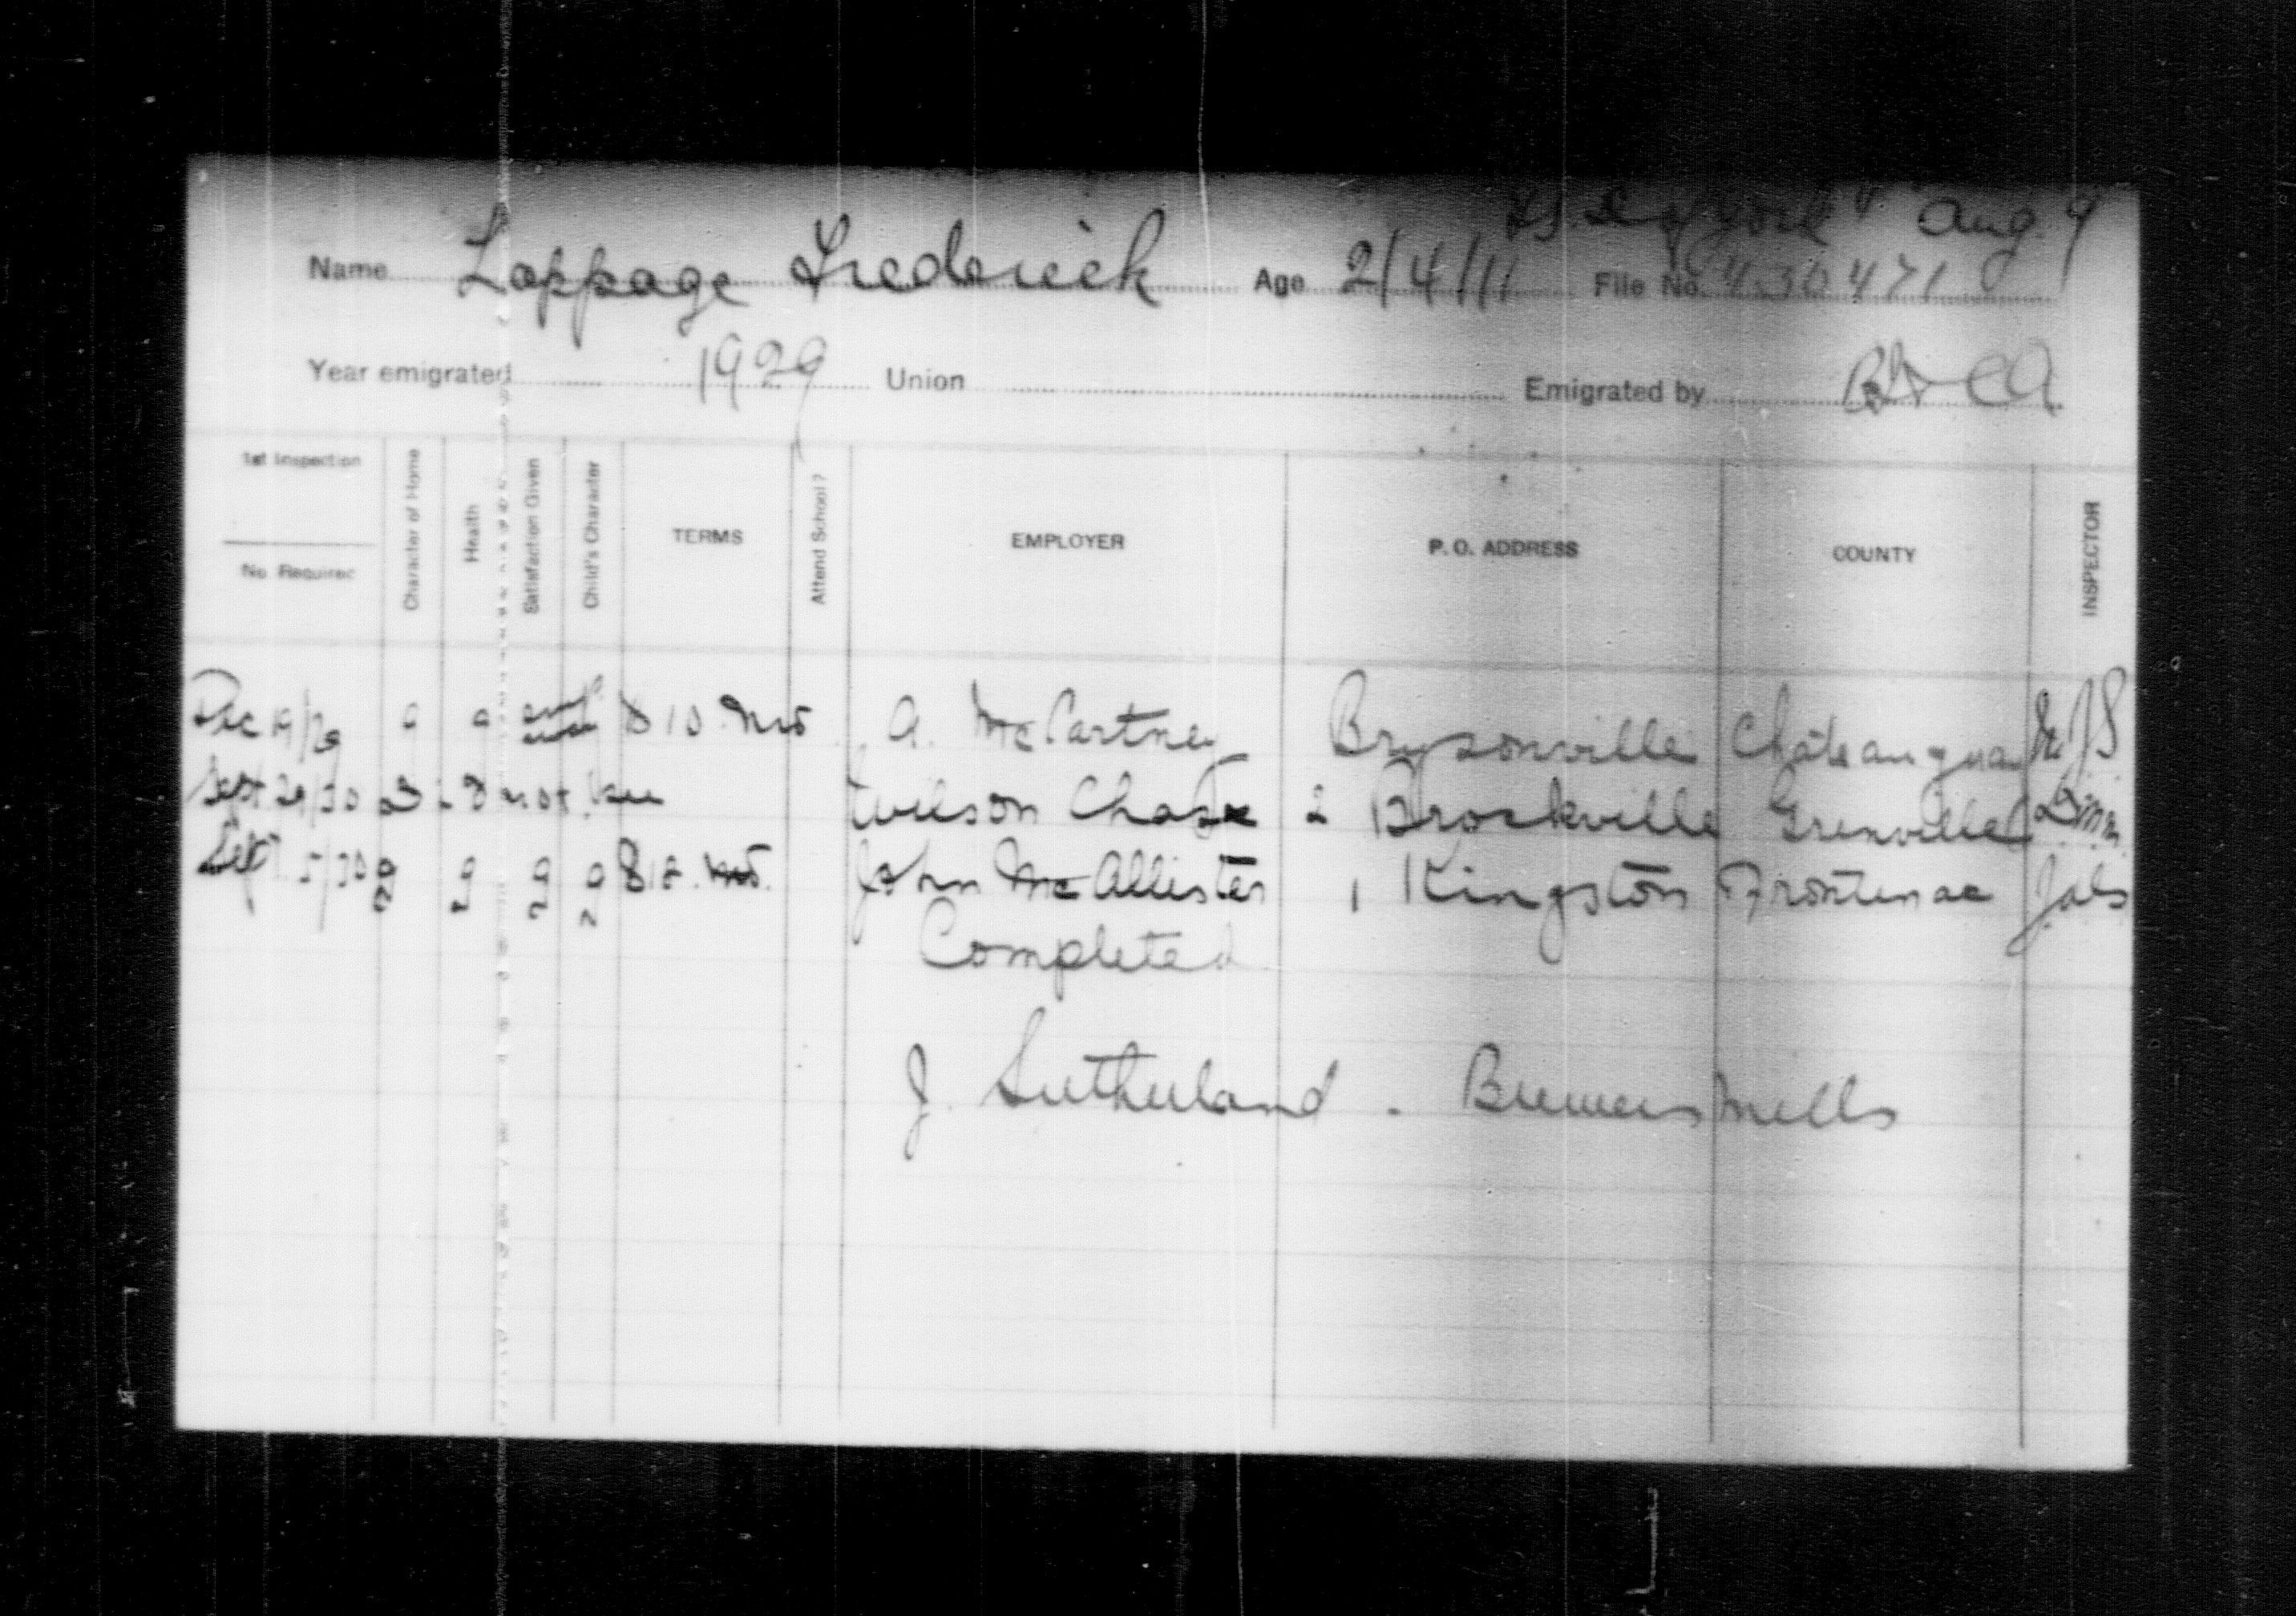 SS. D of York" Aug. 9
Name Loppage Frederick Age 2/4/11 File No. 430471
Year emigrated 1929 Union Emigrated by
1st Inspection
No. Required
Character of Home
Health
Satisfaction Given
Child's Character
TERMS
Attend School?
EMPLOYER
P. O. ADDRESS
COUNTY
INSPECTOR
Dec 19/29 g g $10. mo A. McCartney Brysonville Châteauguay
Sept 29/30 Did not see Wilson Chase 2 Brockville Grenville
Sept 5/30 g g g g $12. mo. John McAllister 1 Kingston Frontenac
Completed
J. Sutherland - Brewers Mills